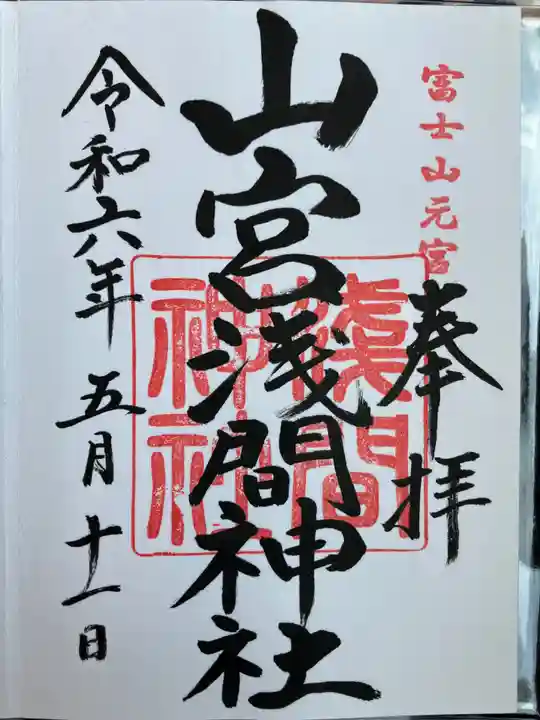 富士山元宮
奉拝
山宮浅間神社
浅間神社
令和六年 五月 十一日